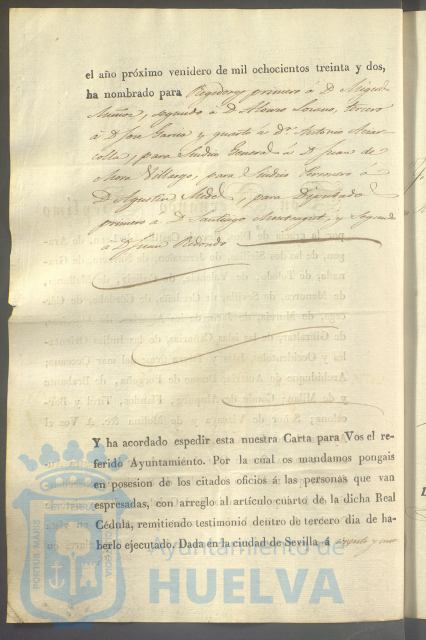 el año próximo venidero de mil ochocientos treinta y dos,
ha nombrado para Regidores primero á D. Miguel
Muñoz, segundo á D. Alonso Lozano, tercero
á D. Jose Garcia y quarto á Dn. Antonio
para Sindico General á D. Juan de
Mora Villarejo, para Sindico Personero á
D. Agustin Midel, para Diputado
primero á D. Santiago y segundo
á D. Juan Redondo
Y ha acordado espedir esta nuestra Carta para Vos el re-
ferido Ayuntamiento. Por la cual os mandamos pongais
en posesion de los citados oficios á las personas que van
espresadas, con arreglo al artículo cuarto de la dicha Real
Cédula, remitiendo testimonio dentro de tercero dia de ha-
berlo ejecutado. Dada en la ciudad de Sevilla á
Ayuntamiento de
HUELVA
PORTUS MARIS